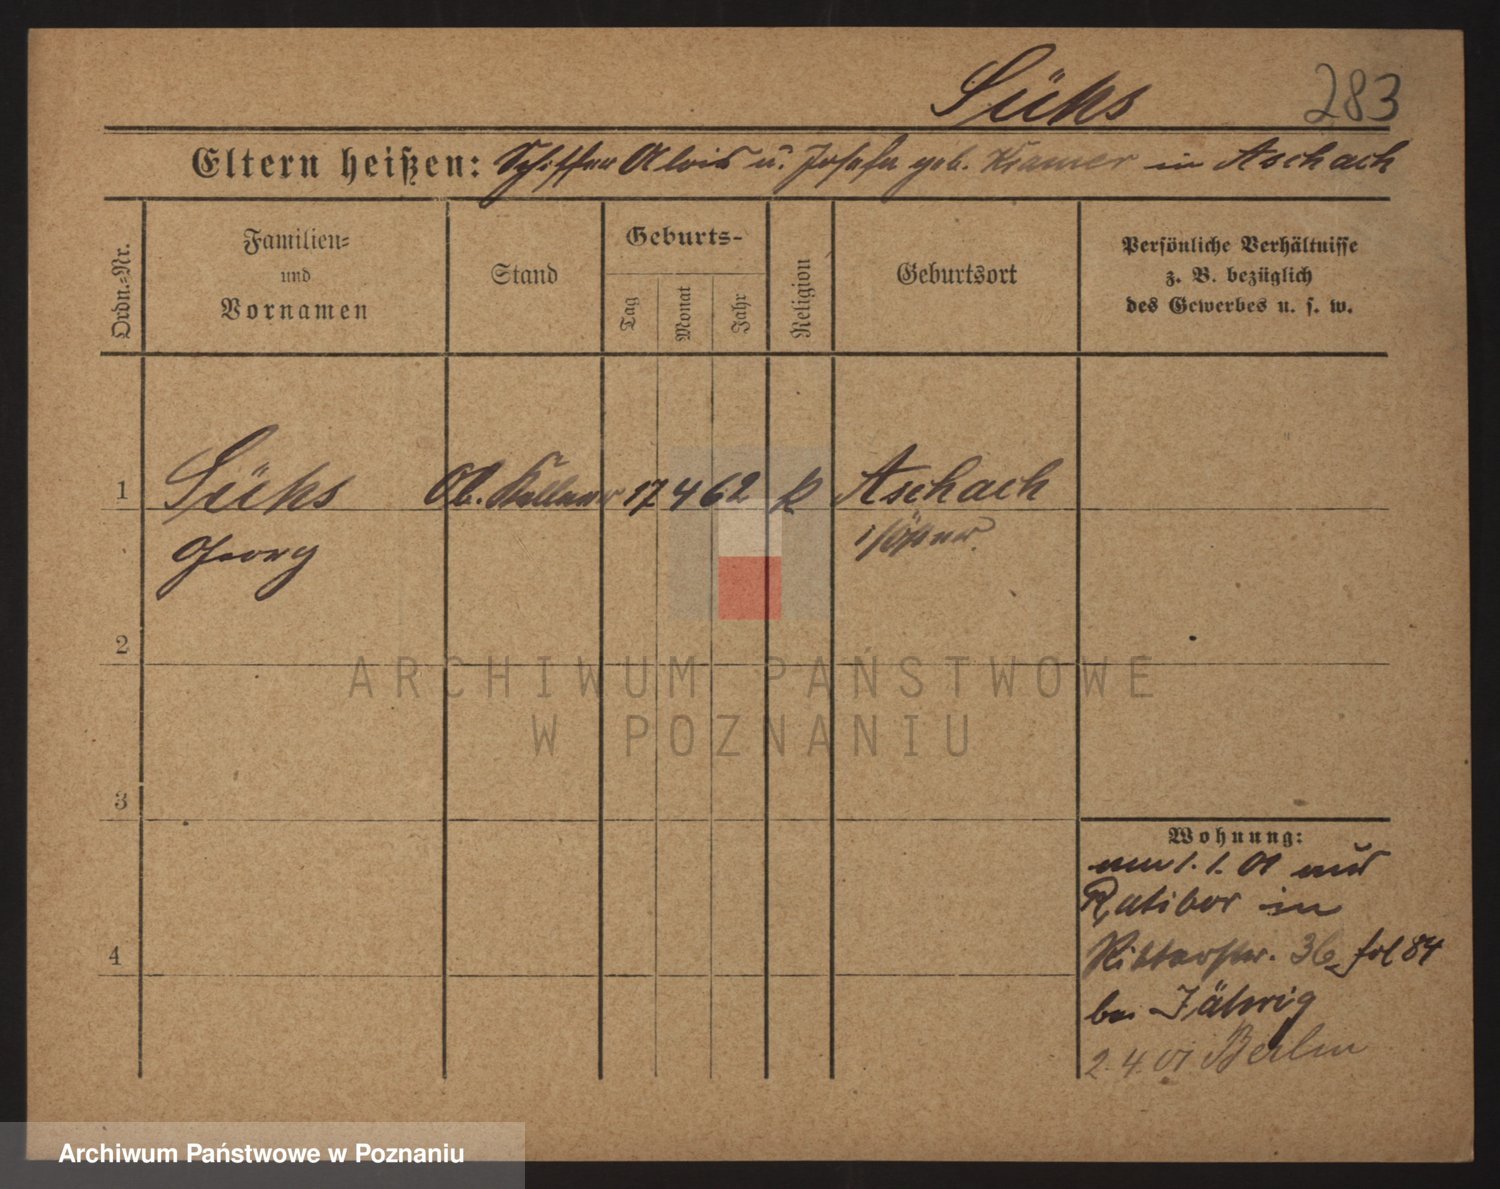 Süks 283
Eltern heißen: Schiffer Alois u. Josefa geb. Kramer in Aschach
Ordn.-Nr.
Familien-
und
Vornamen
Stand
Geburts-
Tag
Monat
Jahr
Religion
Geburtsort
Persönliche Verhältnisse
z. B. bezüglich
des Gewerbes u. s. w.
1 Süks Ob. Kellner 17 4 62 k Aschach
Georg
2
3
4
Wohnung:
am 1. 1. 01 aus
Ratibor in
Ritterstr. 36 fol 84
bei Jährig
2. 4. 01 Berlin
ARCHIWUM PAŃSTWOWE
W POZNANIU
Archiwum Państwowe w Poznaniu